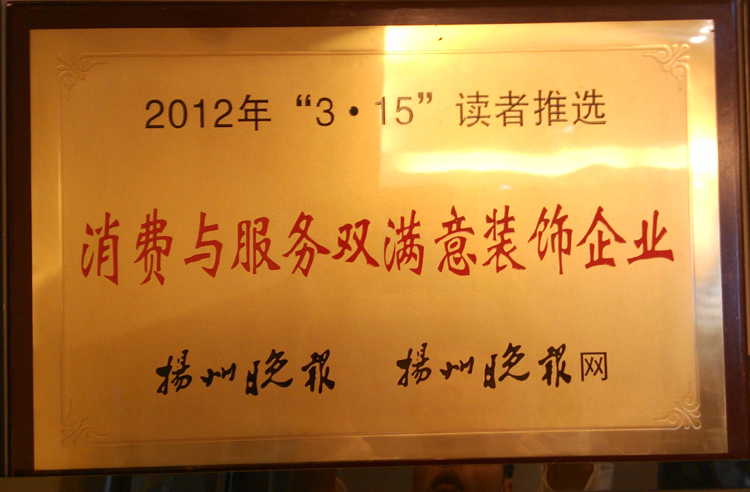 2012年“3·15”读者推选
消费与服务双满意装饰企业
揚州晚报 揚州晚报网